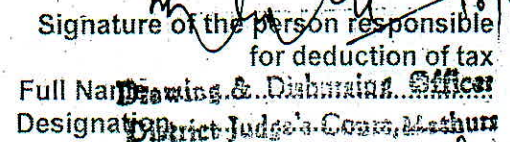 Signature of the person responsible
for deduction of tax
Full Name Drawing & Disbursing Officer
Designation District Judge's Court, Mathura